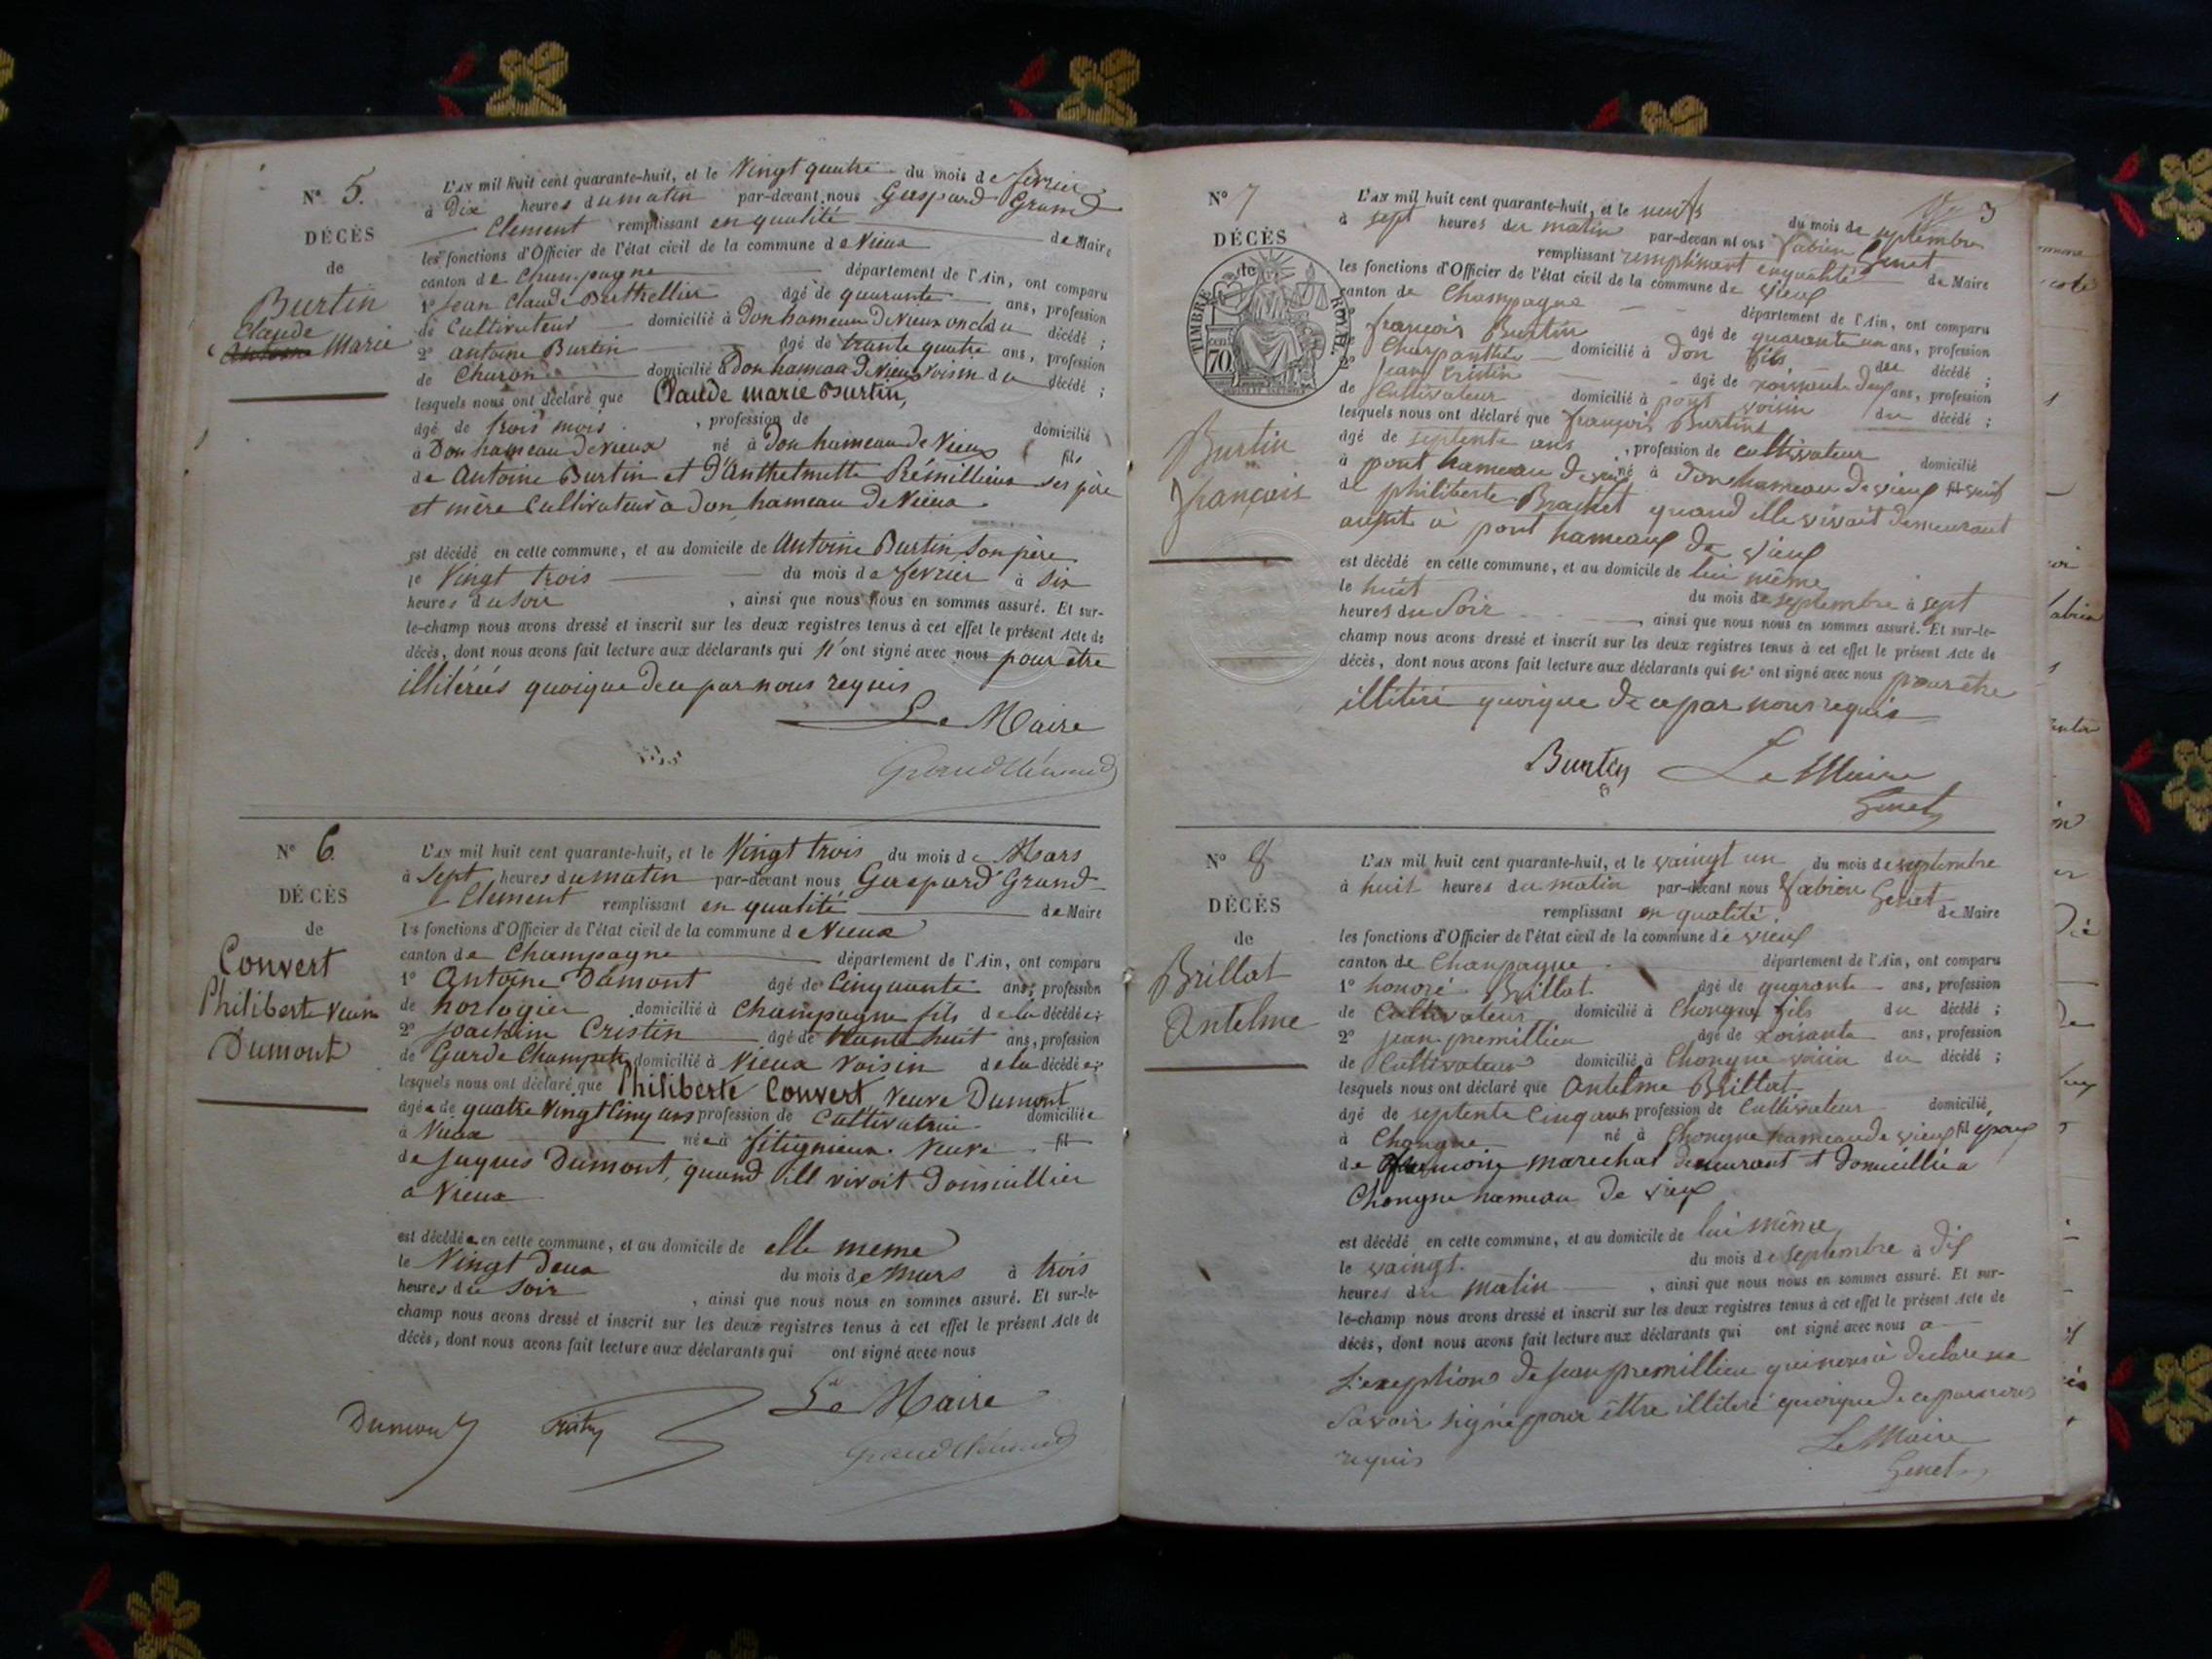 N° 5.
DÉCÈS
de
Burtin
Claude
Antoine Marie
L'AN mil huit cent quarante-huit, et le Vingt quatre du mois de fevrier
à Dix heures du matin par-devant nous Gaspard Grand
Clement remplissant en qualité de Maire
les fonctions d'Officier de l'état civil de la commune de Vieux
canton de Champagne département de l'Ain, ont comparu
1° Jean Claude Berthellier âgé de quarante ans, profession
de Cultivateur domicilié à Don hameau de Vieux oncle du décédé ;
2° antoine Burtin âgé de trante quatre ans, profession
de Charon domicilié à Don hameau de Vieux voisin du décédé ;
lesquels nous ont déclaré que Claude marie Burtin,
âgé de trois mois , profession de domicilié
à Don hameau de vieux né à Don hameau de Vieux fils
de Antoine Burtin et d'Anthelmette Prémillieux ses père
et mère Cultivateur à Don hameau de Vieux
est décédé en cette commune, et au domicile de Antoine Burtin son père
le Vingt trois du mois de fevrier à Six
heures du Soir , ainsi que nous nous en sommes assuré. Et sur-
le-champ nous avons dressé et inscrit sur les deux registres tenus à cet effet le présent Acte de
décès, dont nous avons fait lecture aux déclarants qui n'ont signé avec nous pour être
illiterés quoique de ce par nous requis
Le Maire
Grand Clément
N° 6.
DÉCÈS
de
Convert
Philiberte Veuve
Dumont
L'AN mil huit cent quarante-huit, et le Vingt trois du mois de Mars
à Sept heures du matin par-devant nous Gaspard Grand
Clement remplissant en qualité de Maire
les fonctions d'Officier de l'état civil de la commune de Vieux
canton de Champagne département de l'Ain, ont comparu
1° Antoine Dumont âgé de Cinquante ans, profession
de horlogier domicilié à Champagne fils de la décédée ;
2° Joachim Cristin âgé de trante huit ans, profession
de Garde Champetre domicilié à Vieux voisin de la décédée ;
lesquels nous ont déclaré que Philiberte Convert Veuve Dumont
âgée de quatre Vingt Cinq ans profession de Cultivatrice domiciliée
à Vieux née à fitignieux Veuve fil
de Jaques Dumont, quand ill vivoit Domicillier
a Vieux
est décédée en cette commune, et au domicile de elle meme
le Vingt Deux du mois de Mars à trois
heures du Soir , ainsi que nous nous en sommes assuré. Et sur-le-
champ nous avons dressé et inscrit sur les deux registres tenus à cet effet le présent Acte de
décès, dont nous avons fait lecture aux déclarants qui ont signé avec nous
Le Maire
Dumont Cristin
Grand Clément
N° 7
3
DÉCÈS
de
TIMBRE ROYAL
70
Burtin
françois
L'AN mil huit cent quarante-huit, et le neuf du mois de septembre
à sept heures du matin par-devant nous Fabien Genet
remplissant remplissent en qualité de Maire
les fonctions d'Officier de l'état civil de la commune de Vieux
canton de Champagne département de l'Ain, ont comparu
françois Burtin âgé de quarante un ans, profession
Charpantier domicilié à Don fils du décédé ;
2° Jean Cristin âgé de xoissante deux ans, profession
de Cultivateur domicilié à pont voisin du décédé ;
lesquels nous ont déclaré que françois Burtin
âgé de septente ans , profession de cultivateur domicilié
à pont hameau de vieux né à Don hameau de vieux fil veuf
de philiberte Brachet quand elle vivait demeurant
à pont hameaux de Vieux
est décédé en cette commune, et au domicile de lui même
le huit du mois de septembre à sept
heures du Soir , ainsi que nous nous en sommes assuré. Et sur-le-
champ nous avons dressé et inscrit sur les deux registres tenus à cet effet le présent Acte de
décès, dont nous avons fait lecture aux déclarants qui n'ont signé avec nous pour être
illitiré quoique de ce par nous requis
Burtin Le Maire
Genet
N° 8
DÉCÈS
de
Brillat
Antelme
L'AN mil huit cent quarante-huit, et le vaingt un du mois de septembre
à huit heures du matin par-devant nous Fabien Genet
remplissant en qualité de Maire
les fonctions d'Officier de l'état civil de la commune de vieux
canton de Chanpagne département de l'Ain, ont comparu
1° honoré Brillat âgé de quarante ans, profession
de Cultivateur domicilié à Chongne fils du décédé ;
2° jean premillieu âgé de xoisante ans, profession
de Cultivateur domicilié à Chongne voisin du décédé ;
lesquels nous ont déclaré que Antelme Brillat
âgé de septente Cinq ans profession de Cultivateur domicilié
à Chongne né à Chongne hameau de vieux fil époux
de marechal demeurant et Domicillié a
Chongne hameau de vieux
est décédé en cette commune, et au domicile de lui même
le vaingt. du mois de septembre à dix
heures du matin , ainsi que nous nous en sommes assuré. Et sur-
le-champ nous avons dressé et inscrit sur les deux registres tenus à cet effet le présent Acte de
décès, dont nous avons fait lecture aux déclarants qui ont signé avec nous a
L'exeption de jean premillieu qui nous à declare ne
Savoir signé pour être illitéré quoique de ce par nous
requis
Le Maire
Genet